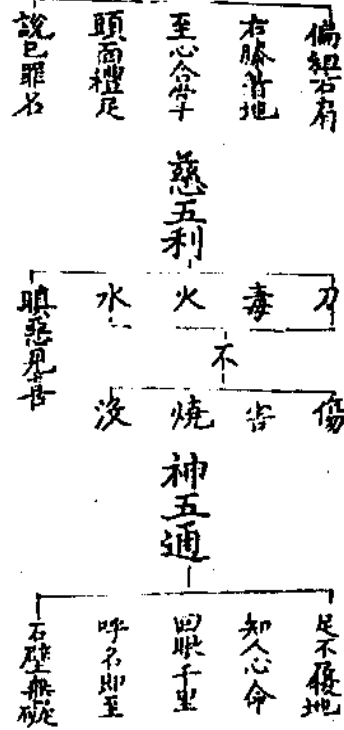 偏袒右肩
右膝着地
至心合掌
頭面禮足
說已罪名
慈五利
刀
毒
火
水
瞋惡見喜
不
傷
害
燒
沒
神五通
足不履地
知人心命
回眼千里
呼名即至
石壁無礙